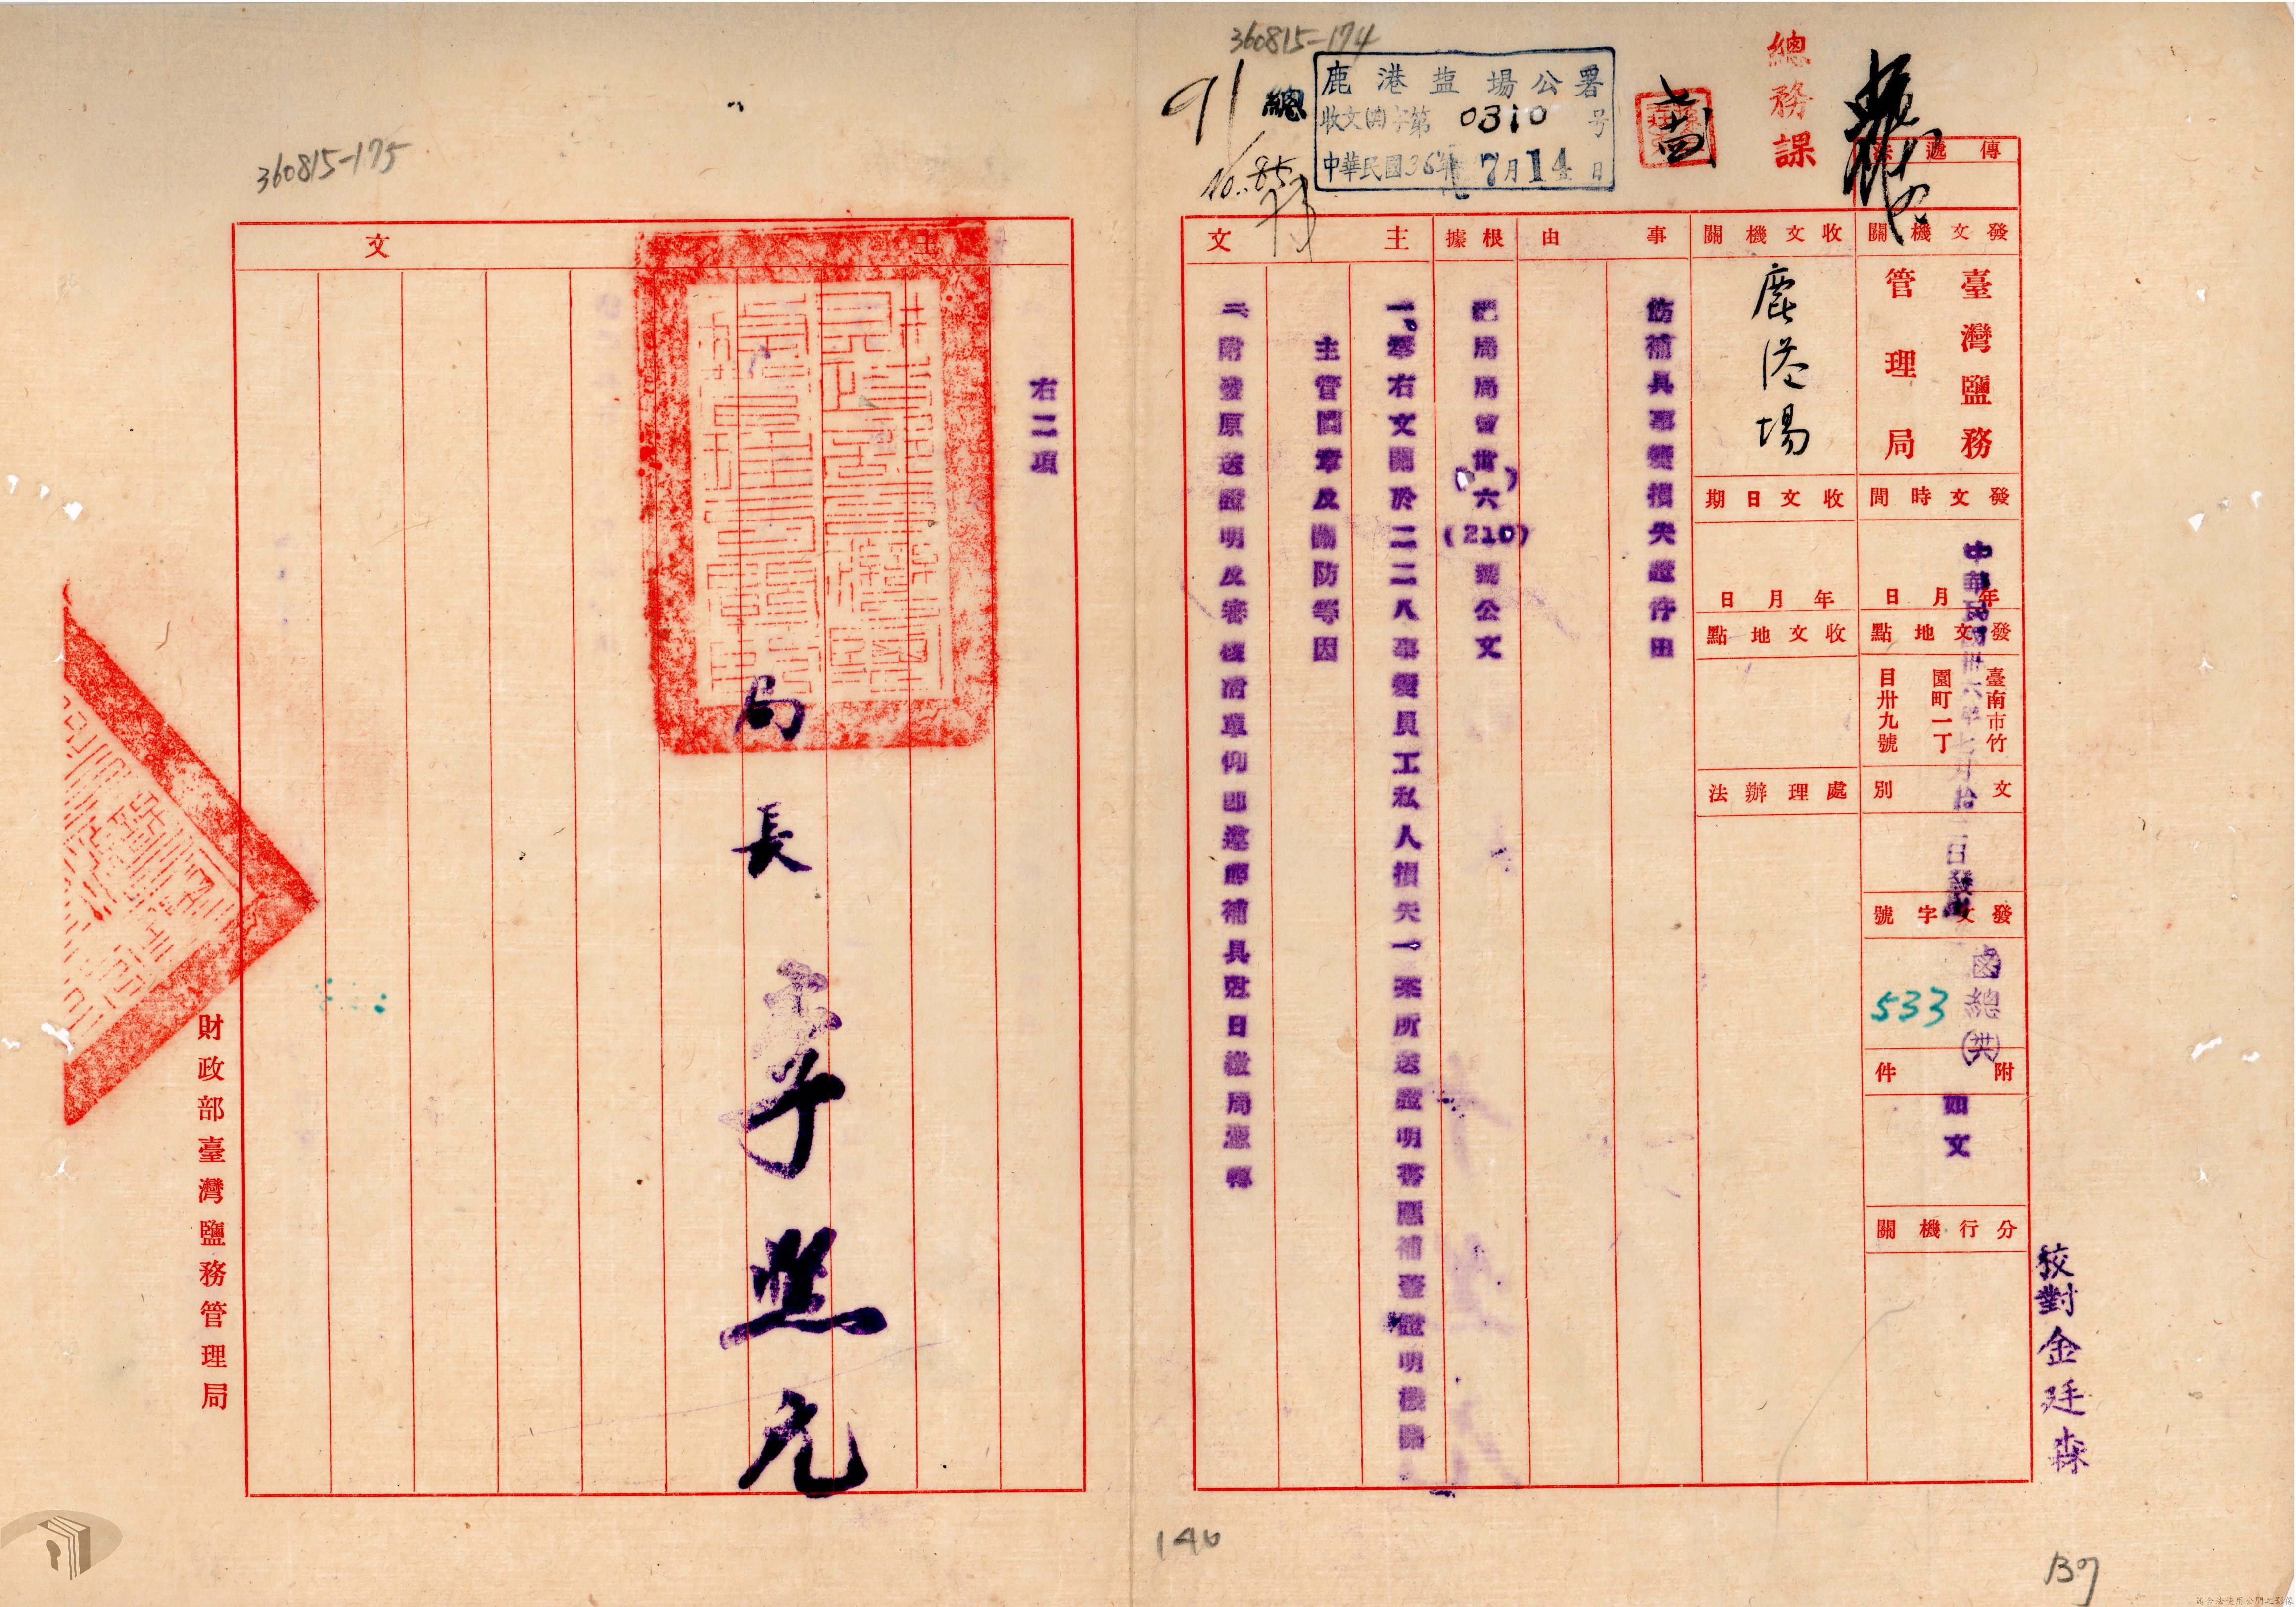 360815-174
91
總
鹿港盐場公署
收文 字第0310号
中華民國36年7月14日
總務課
傳遞法
發文機關
臺灣鹽務
管理局
收文機關
鹿港場
發文時間
年月日
中華民國卅六年七月拾二日發出
收文日期
年月日
發文地點
臺南市竹
園町一丁
目卅九號
收文地點
文別
處理辦法
發文字號
鹵總
533
附件
如文
分行機關
校對金廷森
事由
飭補具事變損失證件由
根據
局局 卅六(210)號公文
主文
一、奉右文關於二二八事變員工私人損失一案所送證明書應補蓋證明機關
主管圖章及關防等因
二、附發原送證明及審核清單仰即遵照補具尅日繳局憑轉
360815-175
主文
右二項
局長李照允
財政部臺灣鹽務管理局
140
139
請合法使用公開之影像